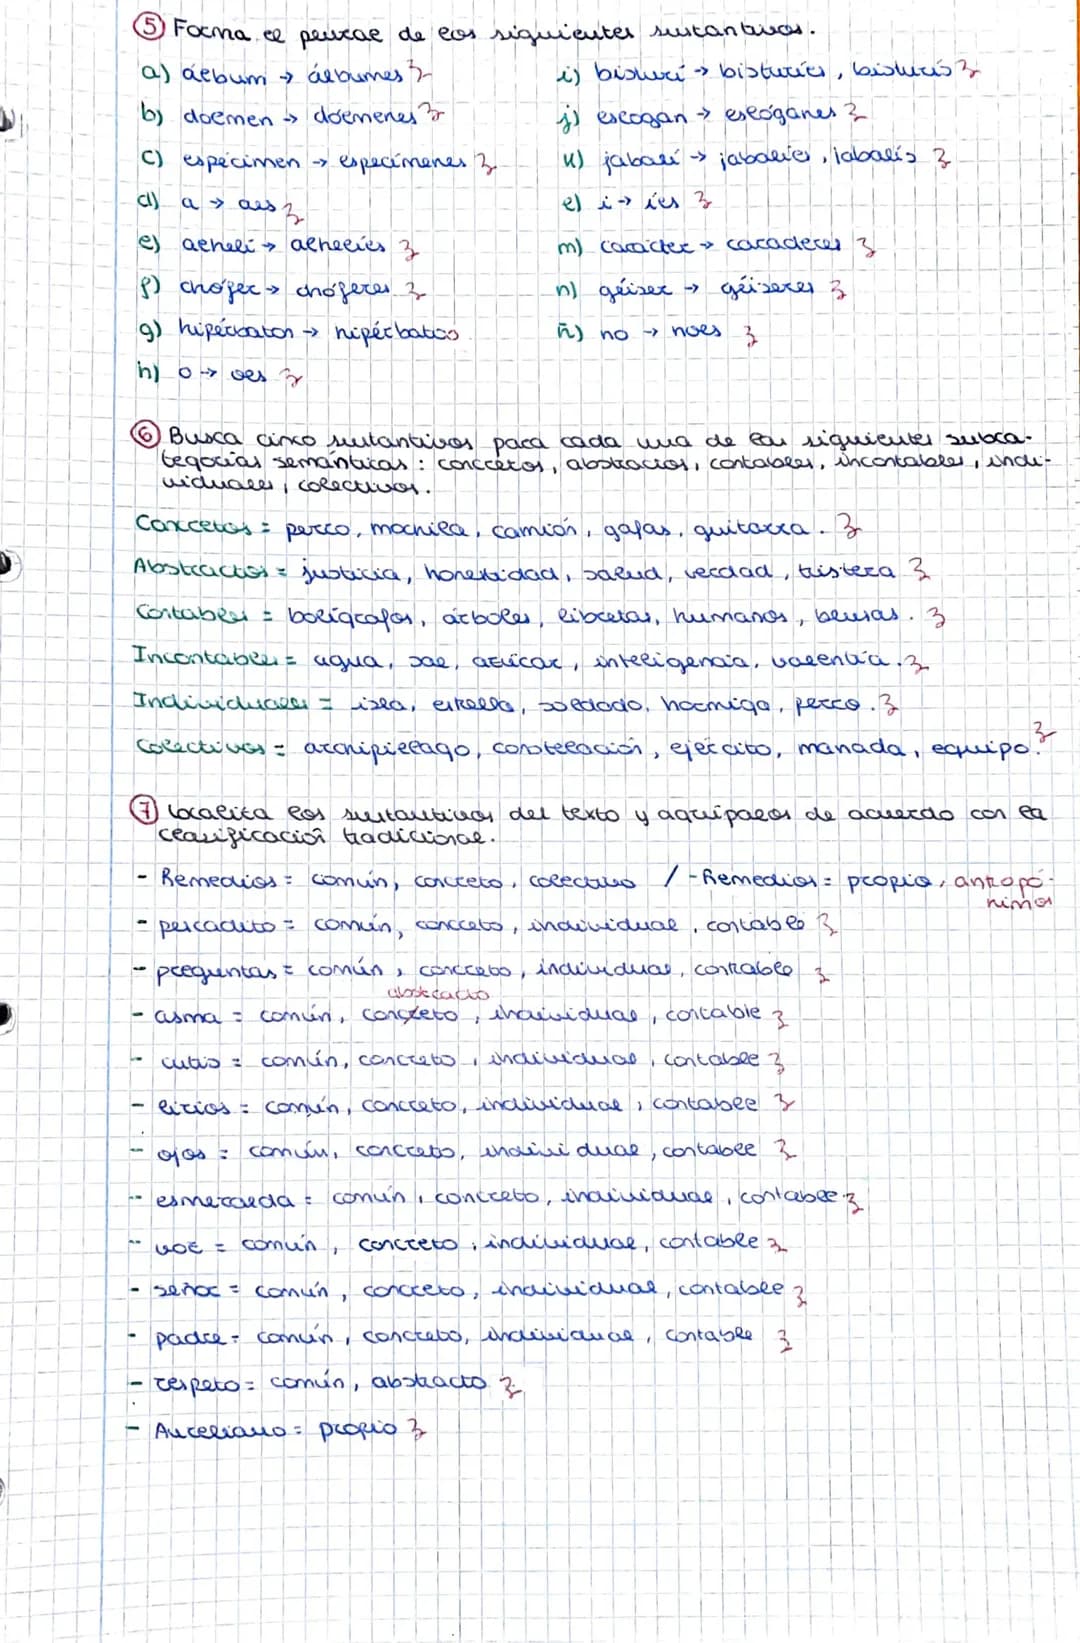 5 Forma el plural de los siguientes sustantivos.
a) álbum → álbumes
b) dolmen → dólmenes
c) espécimen → especímenes
d) a → aes
e) alhelí → alhelíes
f) chófer → chóferes
g) hipérbaton → hipérbatos
h) o → oes
i) bisturí → bisturíes, bisturís
j) eslogan → eslóganes
k) jabalí → jabalíes, jabalís
l) i → íes
m) carácter → caracteres
n) géiser → géiseres
ñ) no → noes
6 Busca cinco sustantivos para cada una de las siguientes subca-
tegorías semánticas: concretos, abstractos, contables, incontables, indi-
viduales, colectivos.
Concretos = perro, mochila, camión, gafas, guitarra.
Abstractos = justicia, honestidad, salud, verdad, tristeza
Contables = bolígrafos, árboles, libretas, humanos, blusas.
Incontables = agua, sal, azúcar, inteligencia, valentía.
Individuales = isla, estrella, soldado, hormiga, perro.
Colectivos = archipiélago, constelación, ejército, manada, equipo.
7 Localiza los sustantivos del texto y agrúpalos de acuerdo con la
clasificación tradicional.
- Remedios = común, concreto, colectivo / - Remedios = propio, antropó-
nimos
- pescadito = común, concreto, individual, contable
- preguntas = común, concreto, individual, contable
abstracto
- asma = común, concreto, individual, contable
- cutis = común, concreto, individual, contable
- lirios = común, concreto, individual, contable
- ojos = común, concreto, individual, contable
- esmeralda = común, concreto, individual, contable
- voz = común, concreto, individual, contable
- señor = común, concreto, individual, contable
- padre = común, concreto, individual, contable
- respeto = común, abstracto
- Aureliano = propio